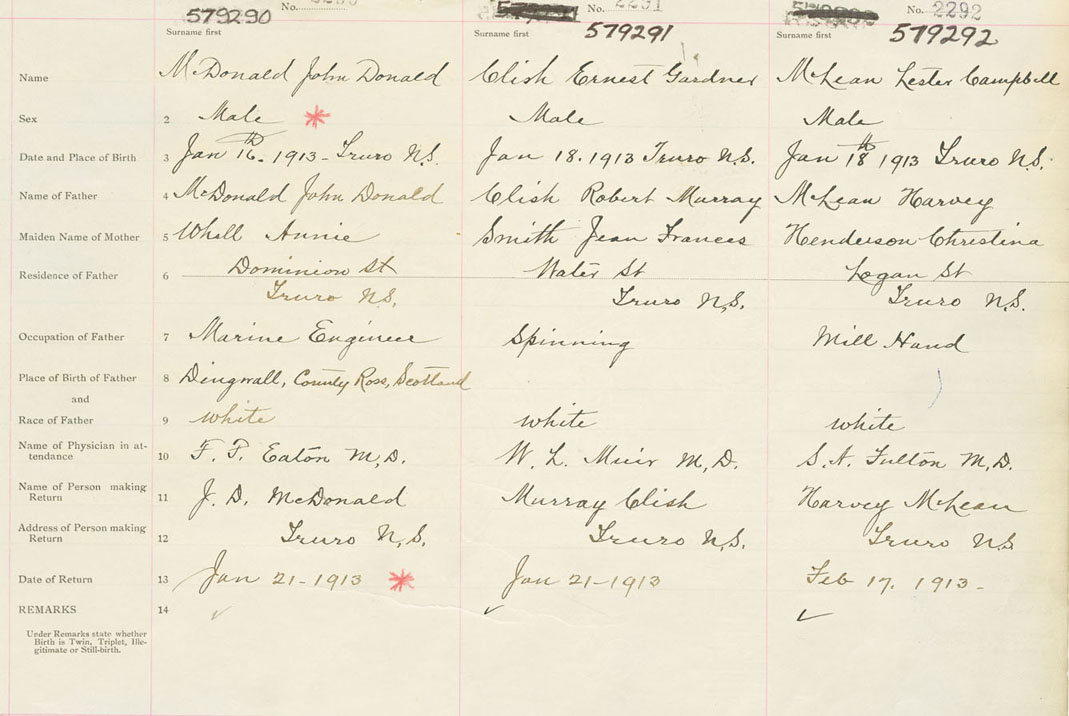 579290 No. 2290 No. 2291 No. 2292
Surname first Surname first 579291 Surname first 579292
Name McDonald John Donald Clish Ernest Gardner McLean Lester Campbell
Sex 2 Male * Male Male
Date and Place of Birth 3 Jan 16th. 1913 - Truro N.S. Jan 18. 1913 Truro N.S. Jan 18th 1913 Truro N.S.
Name of Father 4 McDonald John Donald Clish Robert Murray McLean Harvey
Maiden Name of Mother 5 Whell Annie Smith Jean Frances Henderson Christina
Residence of Father 6 Dominion St Water St Logan St
Truro N.S. Truro N.S. Truro N.S.
Occupation of Father 7 Marine Engineer Spinning Mill Hand
Place of Birth of Father 8 Dingwall, County Ross, Scotland
and
Race of Father 9 white white white
Name of Physician in at-
tendance 10 F. F. Eaton M.D. W. L. Muir M.D. S. N. Fulton M.D.
Name of Person making
Return 11 J. D. McDonald Murray Clish Harvey McLean
Address of Person making
Return 12 Truro N.S. Truro N.S. Truro N.S.
Date of Return 13 Jan 21-1913 * Jan 21-1913 Feb 17. 1913 -
REMARKS 14 ✓ ✓ ✓
Under Remarks state whether
Birth is Twin, Triplet, Ille-
gitimate or Still-birth.